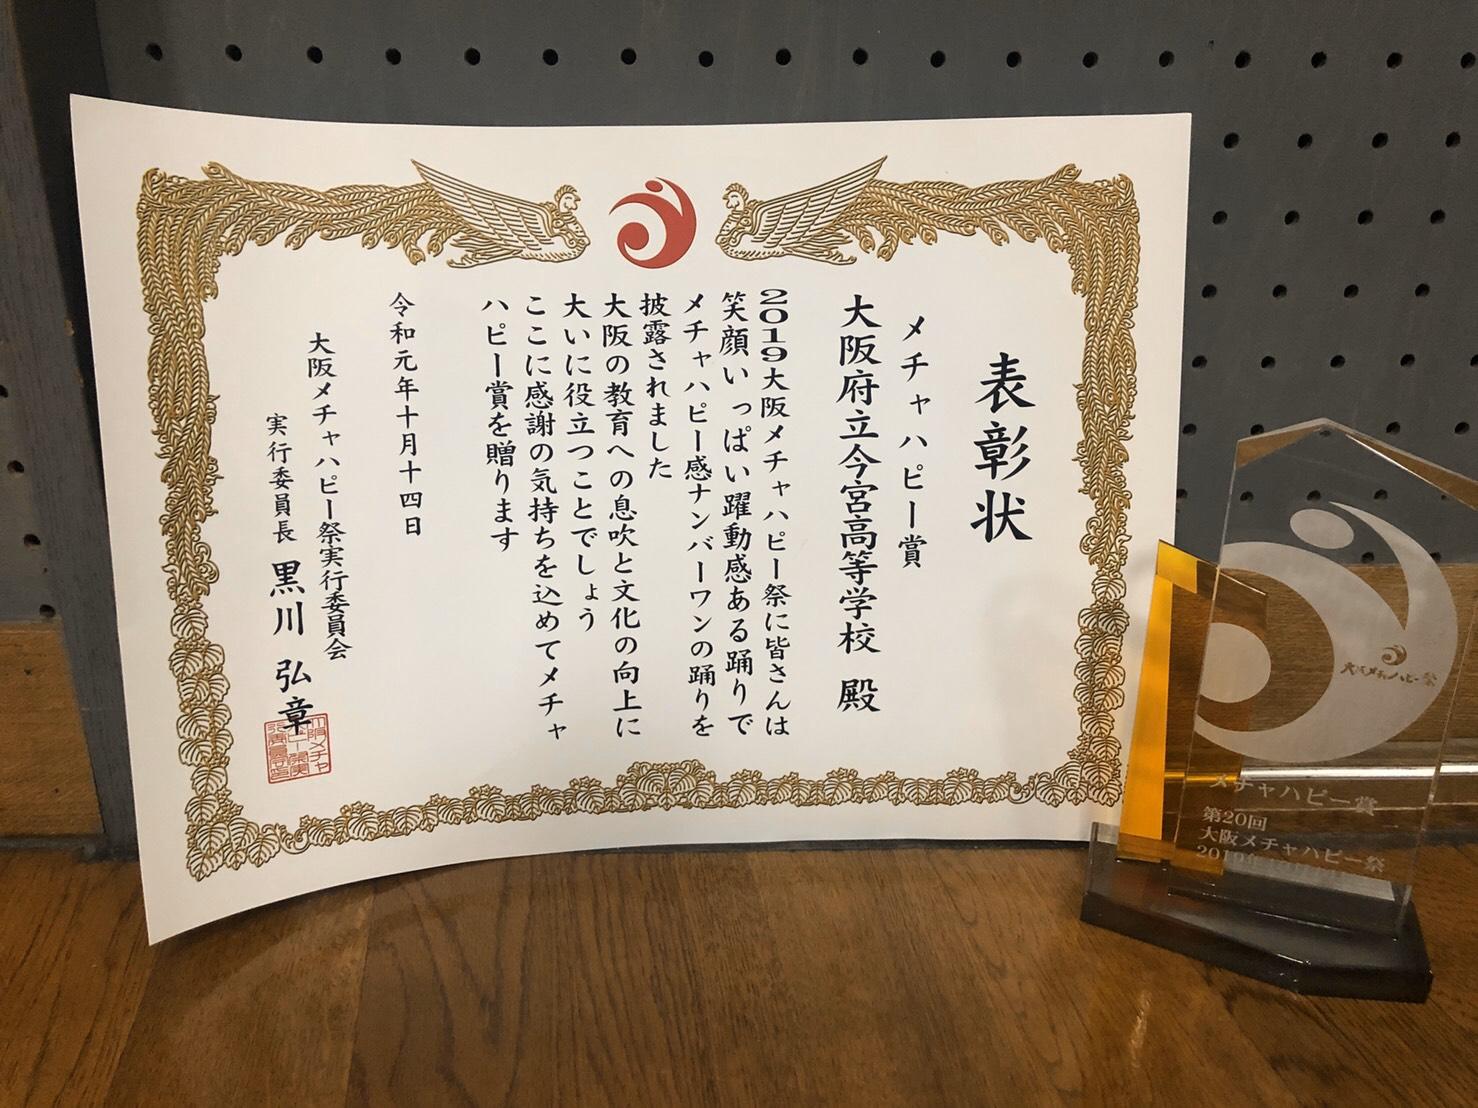 表彰状
メチャハピー賞
大阪府立今宮高等学校 殿
2019大阪メチャハピー祭に皆さんは
笑顔いっぱい躍動感ある踊りで
メチャハピー感ナンバーワンの踊りを
披露されました
大阪の教育への息吹と文化の向上に
大いに役立つことでしょう
ここに感謝の気持ちを込めてメチャ
ハピー賞を贈ります
令和元年十月十四日
大阪メチャハピー祭実行委員会
実行委員長 黒川 弘章
大阪メチャハピー祭
メチャハピー賞
第20回
大阪メチャハピー祭
2019年